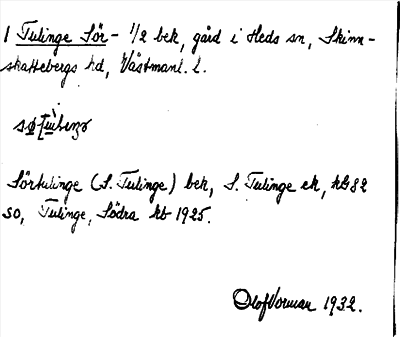 1 Tulinge Sör- 1/2 bek, gård i Heds sn, Skinn-
skattebergs hd, Västmanl. l.
Sörtulinge (S. Tulinge) bek, S. Tulinge ek, kb 82
SO, Tulinge, Södra kb 1925.
Olof Vorman 1932.